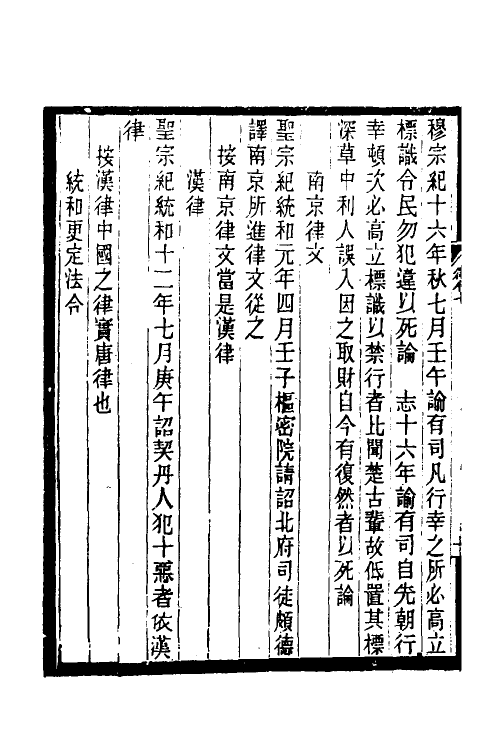 穆宗紀十六年秋七月壬午諭有司凡行幸之所必高立
標識令民勿犯違以死論　志十六年諭有司自先朝行
幸頓次必高立標識以禁行者比聞楚古輩故低置其標
深草中利人誤入因之取財自今有復然者以死論
南京律文
聖宗紀統和元年四月壬子樞密院請詔北府司徒頗德
譯南京所進律文從之
按南京律文當是漢律
漢律
聖宗紀統和十二年七月庚午詔契丹人犯十惡者依漢
律
按漢律中國之律實唐律也
統和更定法令